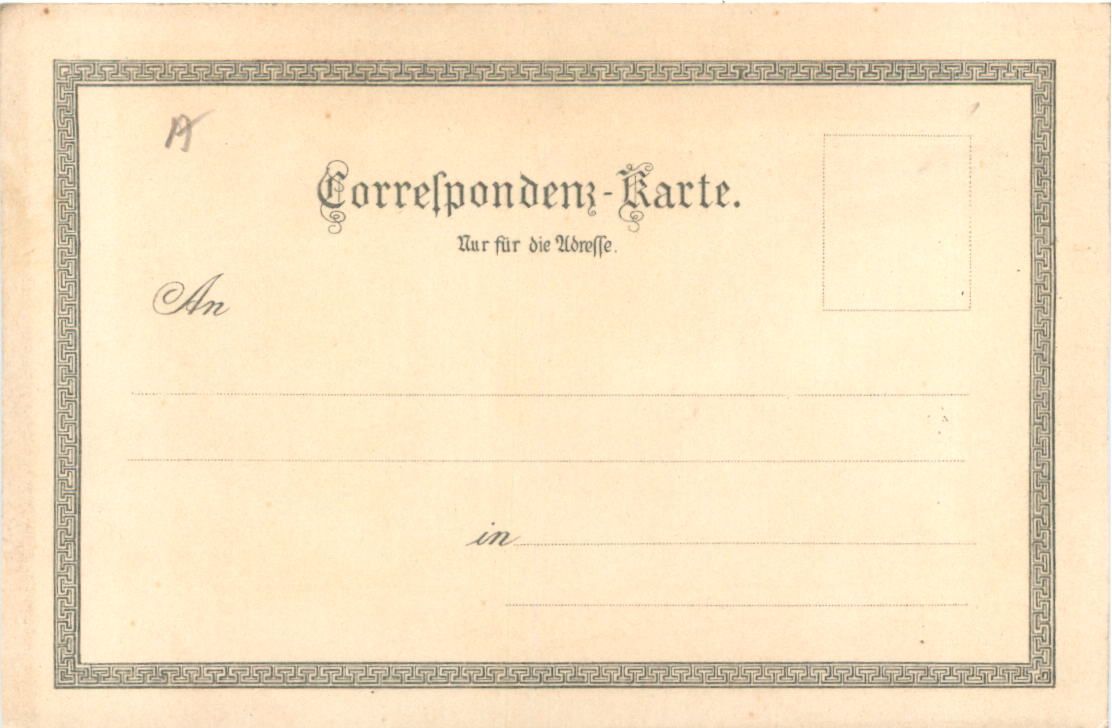 A
Correſpondenz-Karte.
Nur für die Adreſſe.
An
in